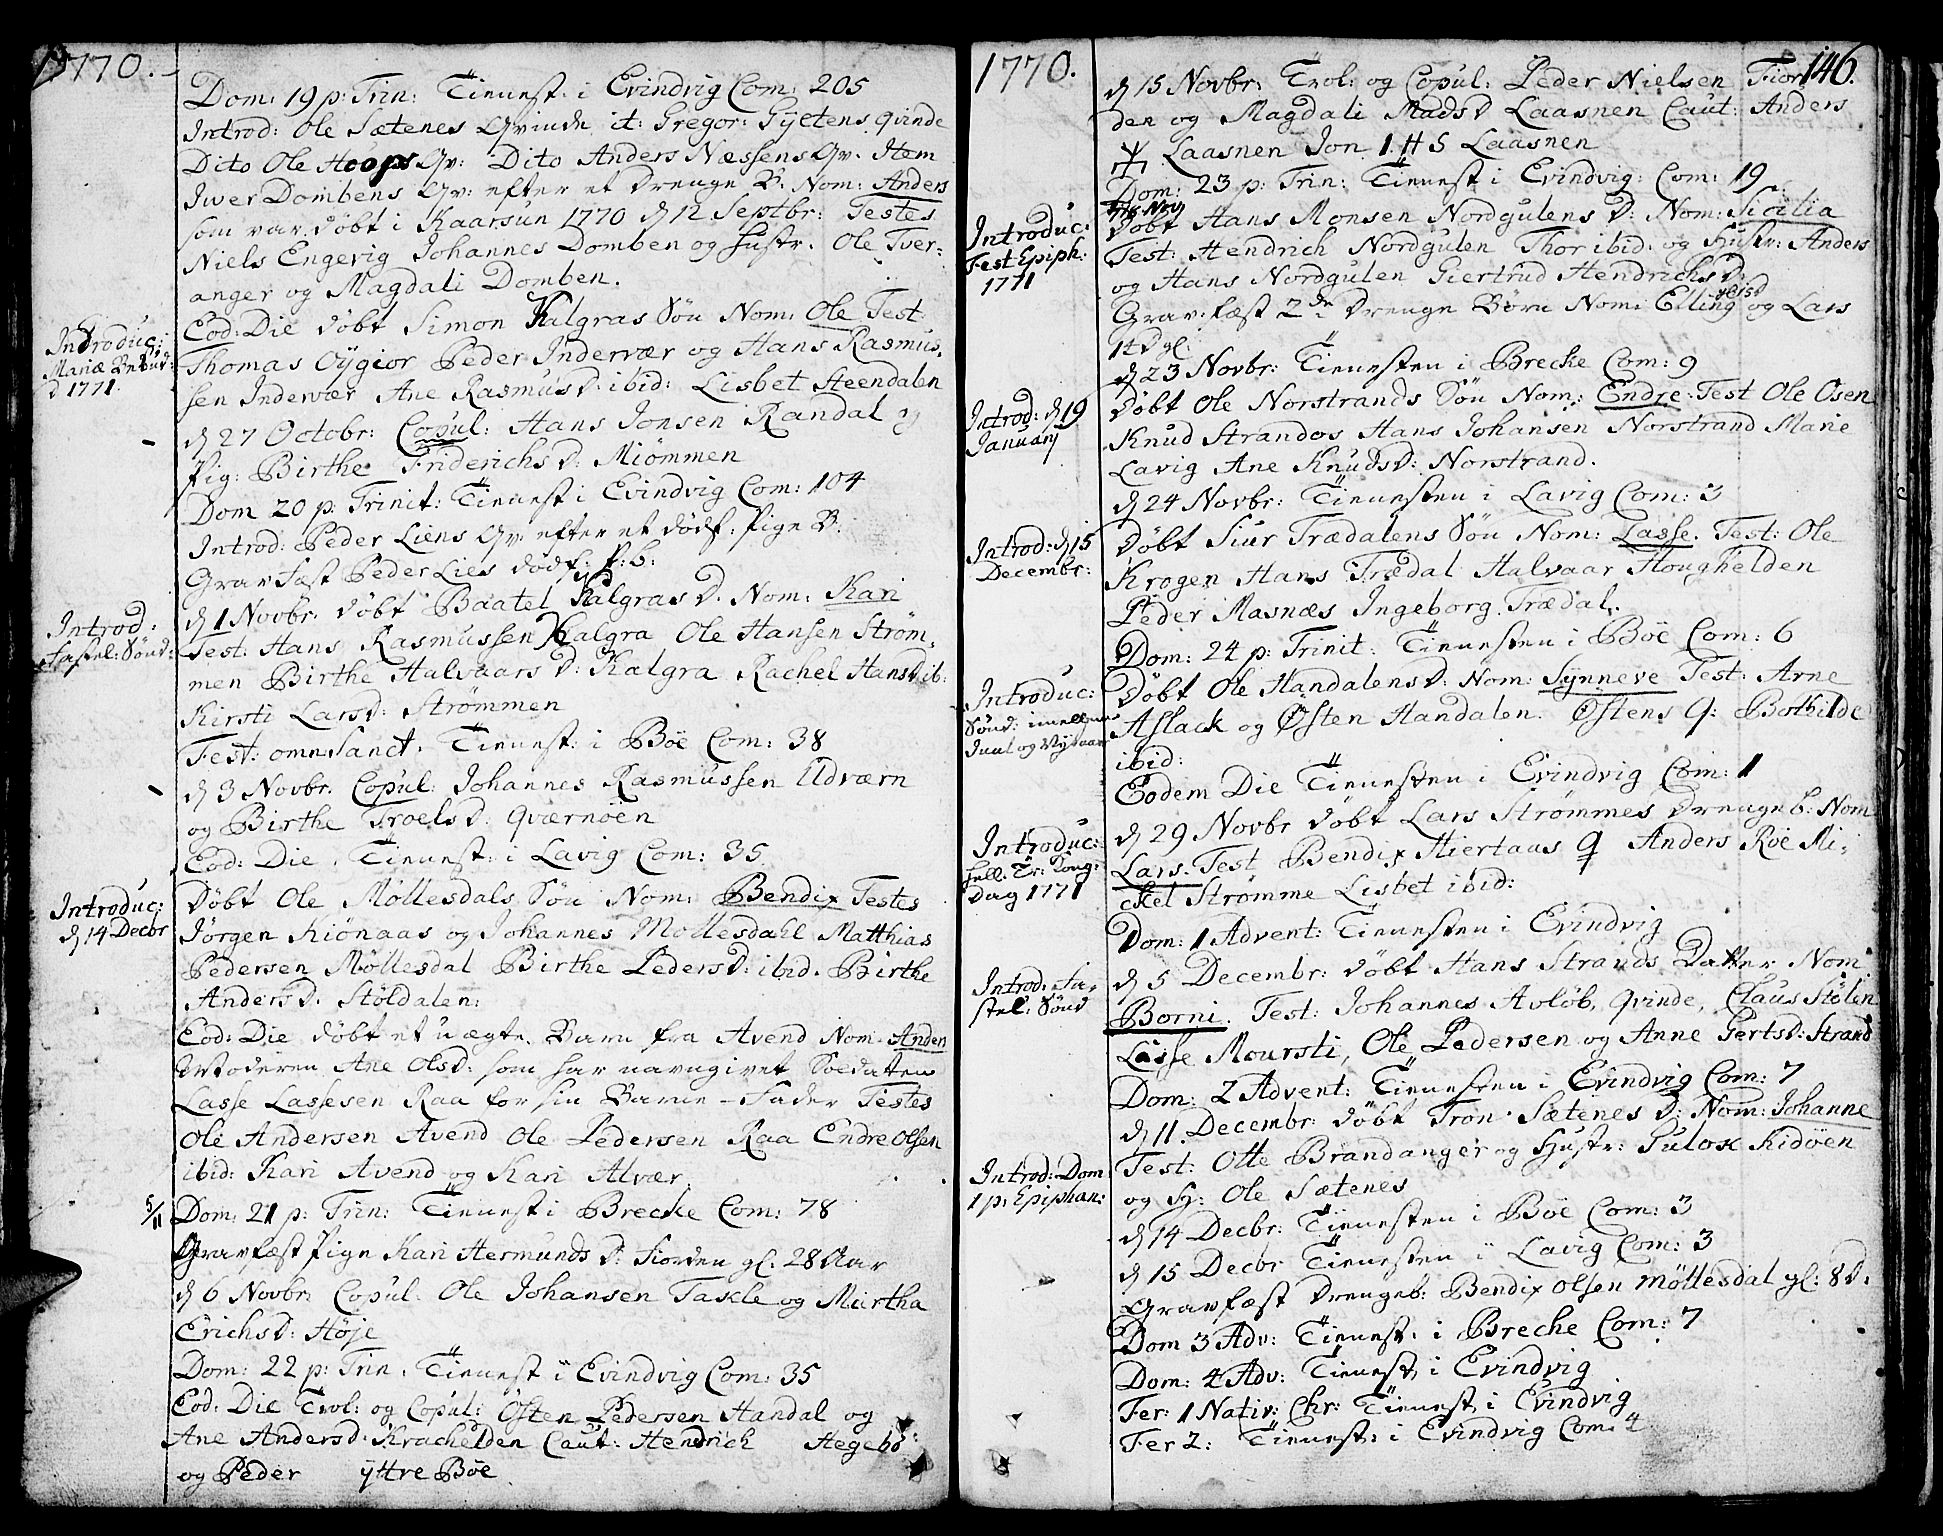 1770.
Dom: 19 p: Trin: Tienest i Evindvig Com: 205
Introd: Ole Sætenes Qvinde it: Gregor: Gÿetens qvinde
Dito Ole Hoops Qv: Dito Anders Næssens Qv. Item
Iwer Dombens Qv: efter et drenge B: Nom: Anders
som var døbt i Kaarsun 1770 d 12 Septbr: Testes
Niels Engevig Johannes Domben og hustr. Ole Tver-
anger og Magdali Domben.
Eod: Die døbt Simon Kalgras Søn Nom: Ole Test:
Introduc:
Mariæ Bebud:
d 1771.
Thomas Oÿgior Peder Indervær og Hans Rasmus-
sen Indevær Ane Rasmusd: ibid: Lisbet Steendalen
d 27 Octobr: Copul: Hans Jonsen Randal og
Pig: Birthe Friderichsd: Miømmen
Dom 20 p: Trinit: Tienest i Evindvig Com: 104
Introd: Peder Liens Qv efter et dødf: Pige B:
GravFæst Peder Lies dødf: P: b:
d 1 Novbr. døbt Baatel Kalgras d. Nom: Kari
Introd:
Fastel: Sønd:
Test: Hans Rasmussen Kalgra Ole Hansen Strøm-
men Birthe Halvaars d: Kalgra Rachel Hansd ib:
Kirsti Larsd: Strømmen
Fest: omn Sanct: Tienest: i Bøe Com: 38
d 3 Novbr. Copul: Johannes Rasmussen Udværn
og Birthe Troelsd: Qværnöen
Eod: Die Tienest: i Lavig Com: 35
Introduc:
d 14 Decbr
Døbt Ole Møllesdals Søn Nom: Bendix Testes
Jørgen Kiönaas og Johannes Mollesdahl Matthias
Pedersen Møllesdal Birthe Pedersd: ibid. Birthe
Andersd. Stöldalen:
Eod: Die döbt et uægte Barn fra Avend Nom. Anden
Moderen Ane Olsd: som har navngivet Soldaten
Lasse Lassesen Raa for sin Barne-Fader Testes
Ole Andersen Avend Ole Pedersen Raa Endre Olsen
ibid: Kari Avend og Kari Alvær.
5/11 Dom: 21 p: Trin: Tienest i Brecke Com: 78
Gravfæst Pige Kari Hermundsd: Fiorden gl: 28 Aar
d 6 Novbr Copul. Ole Johansen Takle og Martha
Erichsd: Høje
Dom: 22 p: Trin: Tienest i Evindvig Com: 35
Eod: Die Trol: og Copul: Østen Pedersen Handal og
Ane Andersd: Krachelden Caut: Hendrich Hegebø:
og Peder ÿttre Bøe
1770.
146.
d 15 Novbr: Trol: og Copul: Peder Nielsen Fior-
den og Magdali Madsd Laasnen Caut: Anders
Laasnen Jon IHS Laasnen
Dom: 23 p: Trin: Tienest i Evindvig: Com: 19
18 Nov
Introduc:
Fest Epiph:
1771
Døbt Hans Monsen Nordgulens D: Nom: Sicilia
Test: Hendrich Nordgulen Thor ibid. og Hustr: Anders
og Hans Nordgulen Giertrud Hendrichsd:
Gravfæst 2de drenge Børn Nom: Elling og Lars
14 D gl:
d 23 Novbr: Tienesten i Brecke Com: 9
Introd: d 19
Januarj
døbt Ole Norstrands Søn Nom: Endre Test Ole Osen
Knud Strandos Hans Johansen Norstrand Marie
Lavig Ane Knudsd: Norstrand.
d 24 Novbr: Tienesten i Lavig Com: 3
Introd: d 15
Decembr:
døbt Siur Trædalens Søn Nom: Lasse. Test: Ole
Krogen Hans Trædal Halvaar Houghelden
Peder Masnæs Ingeborg Trædal.
Dom: 24 p: Trinit: Tienesten i Bøe Com: 6
Introduc:
Sønd: imellem
Juul og Nÿtaar
Døbt Ole Handalens D: Nom: Sÿnneve Test: Arne
Aslack og Østen Handalen. Østens Q: Bothilde
ibid:
Eodem Die Tienesten i Evindvig Com: 1
Introduc:
hell: Tr: Kong:
Dag 1771
d 29 Novbr døbt Lars Strømmes drenge b: Nom
Lars. Test Bendix Hiertaas Q Anders Röe Mi-
ckel Strømme Lisbet ibid:
Dom: 1 Advent: Tienesten i Evindvig
Introd: Fa-
stel: Sønd
d 5 Decembr: døbt Hans Strands Datter Nom
Borni. Test: Johannes Avløb, qvinde, Claus Stölen
Lasse Moursti, Ole Pedersen og Anne Gertsd: Strand
Dom: 2 Advent: Tienesten i Evindvig Com: 7
d 11. Decembr: døbt Tron Sætenes D: Nom: Johanne
Introd: Dom
1 p: Epiphan:
Test: Otte Brandanger og Hustr: Pulox Kidöen
og Hÿ: Ole Sætenes
d 14 Decbr: Tienesten i Bøe Com: 3
d 15 Decbr Tienesten i Lavig Com: 3
Gravfæst Drengeb: Bendix Olsen Möllesdal gl: 8 D:
Dom 3 Adv: Tienest: i Breche Com: 7
Dom: 4 Adv: Tienest: i Evindvig
Fer: 1 Nativ: Chr: Tienest i Evindvig
Fer 2: Tienest: i Evindvig Com: 4